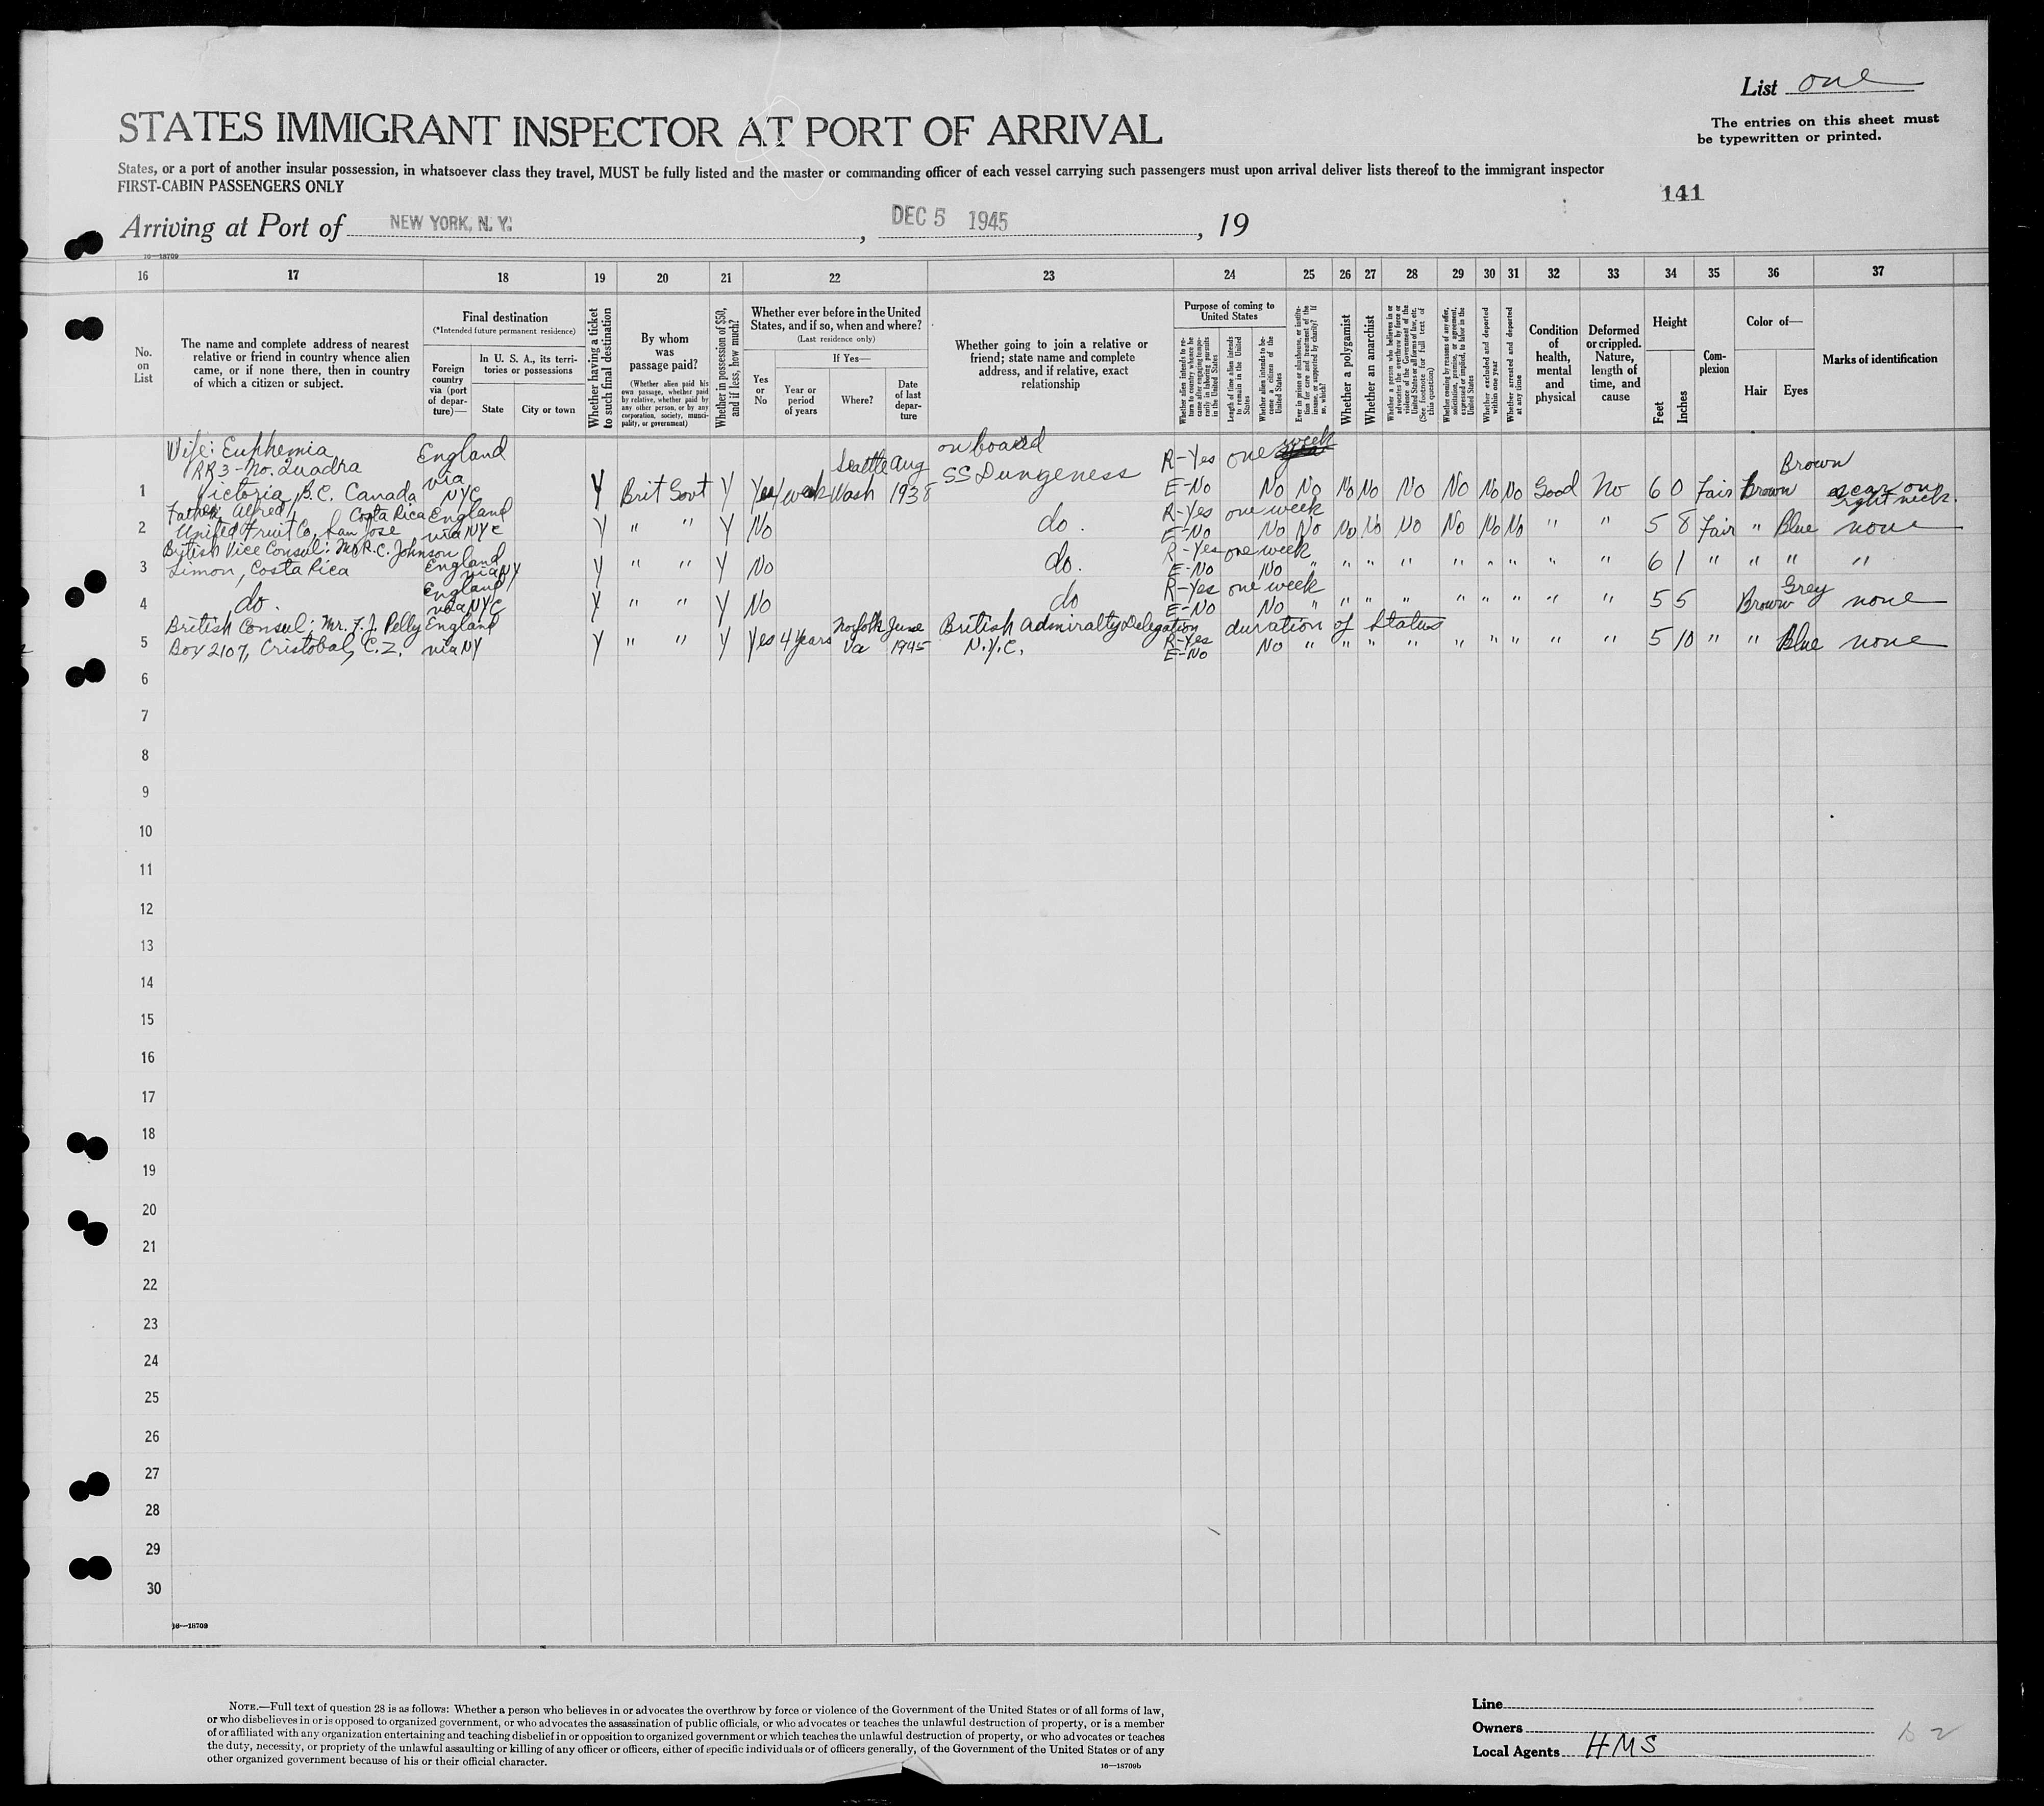 List one
The entries on this sheet must
be typewritten or printed.
STATES IMMIGRANT INSPECTOR AT PORT OF ARRIVAL
States, or a port of another insular possession, in whatsoever class they travel, MUST be fully listed and the master or commanding officer of each vessel carrying such passengers must upon arrival deliver lists thereof to the immigrant inspector
FIRST-CABIN PASSENGERS ONLY
141
Arriving at Port of NEW YORK, N. Y. , DEC 5 1945 , 19
16—18709
16 17 18 19 20 21 22 23 24 25 26 27 28 29 30 31 32 33 34 35 36 37
No.
on
List
The name and complete address of nearest
relative or friend in country whence alien
came, or if none there, then in country
of which a citizen or subject.
Final destination
(*Intended future permanent residence)
Foreign
country
via (port
of depar-
ture)—
In U. S. A., its terri-
tories or possessions
State
City or town
Whether having a ticket
to such final destination
By whom
was
passage paid?
(Whether alien paid his
own passage, whether paid
by relative, whether paid by
any other person, or by any
corporation, society, munic-
ipality, or government)
Whether in possession of $50,
and if less, how much?
Whether ever before in the United
States, and if so, when and where?
(Last residence only)
Yes
or
No
If Yes—
Year or
period
of years
Where?
Date
of last
depar-
ture
Whether going to join a relative or
friend; state name and complete
address, and if relative, exact
relationship
Purpose of coming to
United States
Whether alien intends to re-
turn to country whence he
came after engaging tempo-
rarily in laboring pursuits
in the United States
Length of time alien intends
to remain in the United
States
Whether alien intends to be-
come a citizen of the
United States
Ever in prison or almshouse, or institu-
tion for care and treatment of the
insane, or supported by charity? If
so, which?
Whether a polygamist
Whether an anarchist
Whether a person who believes in or
advocates the overthrow by force or
violence of the Government of the
United States or all forms of law, etc.
(See footnote for full text of
this question)
Whether coming by reasons of any offer,
solicitation, promise, or agreement,
expressed or implied, to labor in the
United States
Whether excluded and deported
within one year
Whether arrested and deported
at any time
Condition
of
health,
mental
and
physical
Deformed
or crippled.
Nature,
length of
time, and
cause
Height
Feet
Inches
Com-
plexion
Color of—
Hair
Eyes
Marks of identification
Wife: Euphemia England on board R-Yes one week
RR3-No. Quadra via Seattle Aug SS Dungeness Brown
1 Victoria, B.C. Canada NYC Y Brit Govt Y Yes 1 week Wash 1938 E-No No No No No No No No No Good No 6 0 Fair Brown scar on right neck.
Father, Alfred, Costa Rica England R-Yes one week
2 United Fruit Co, San Jose via NYC Y " " Y No do. E-No No No No No No No No No " " 5 8 Fair " Blue none
British Vice Consul: Mr R.C. Johnson England R-Yes one week
3 Limon, Costa Rica via NY Y " " Y No do. E-No No " " " " " " " " " 6 1 " " " "
England R-Yes one week Grey
4 do. via NYC Y " " Y No do E-No No " " " " " " " " " 5 5 Brown none
British Consul: Mr. F. J. Pelly England Norfolk June British Admiralty Delegation duration of Status
5 Box 2107, Cristobal, C.Z. via NY Y " " Y Yes 4 years Va 1945 N.Y.C. R-Yes No " " " " " " " " " 5 10 " " Blue none
E-No
6
7
8
9
10
11
12
13
14
15
16
17
18
19
20
21
22
23
24
25
26
27
28
29
30
16—18709
NOTE.—Full text of question 28 is as follows: Whether a person who believes in or advocates the overthrow by force or violence of the Government of the United States or of all forms of law,
or who disbelieves in or is opposed to organized government, or who advocates the assassination of public officials, or who advocates or teaches the unlawful destruction of property, or is a member
of or affiliated with any organization entertaining and teaching disbelief in or opposition to organized government or which teaches the unlawful destruction of property, or who advocates or teaches
the duty, necessity, or propriety of the unlawful assaulting or killing of any officer or officers, either of specific individuals or of officers generally, of the Government of the United States or of any
other organized government because of his or their official character.
16—18709b
Line
Owners
Local Agents HMS